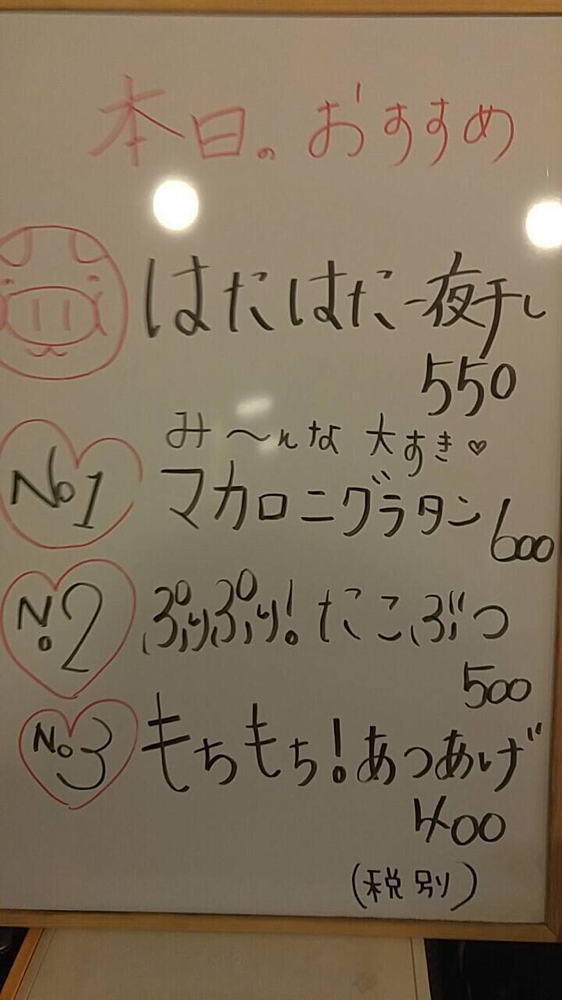 本日。おすすめ
はたはた一夜干し
550
み〜んな 大すき♡
No1 マカロニグラタン 600
No2 ぷりぷり!たこぶつ
500
No3 もちもち!あつあげ
400
(税別)